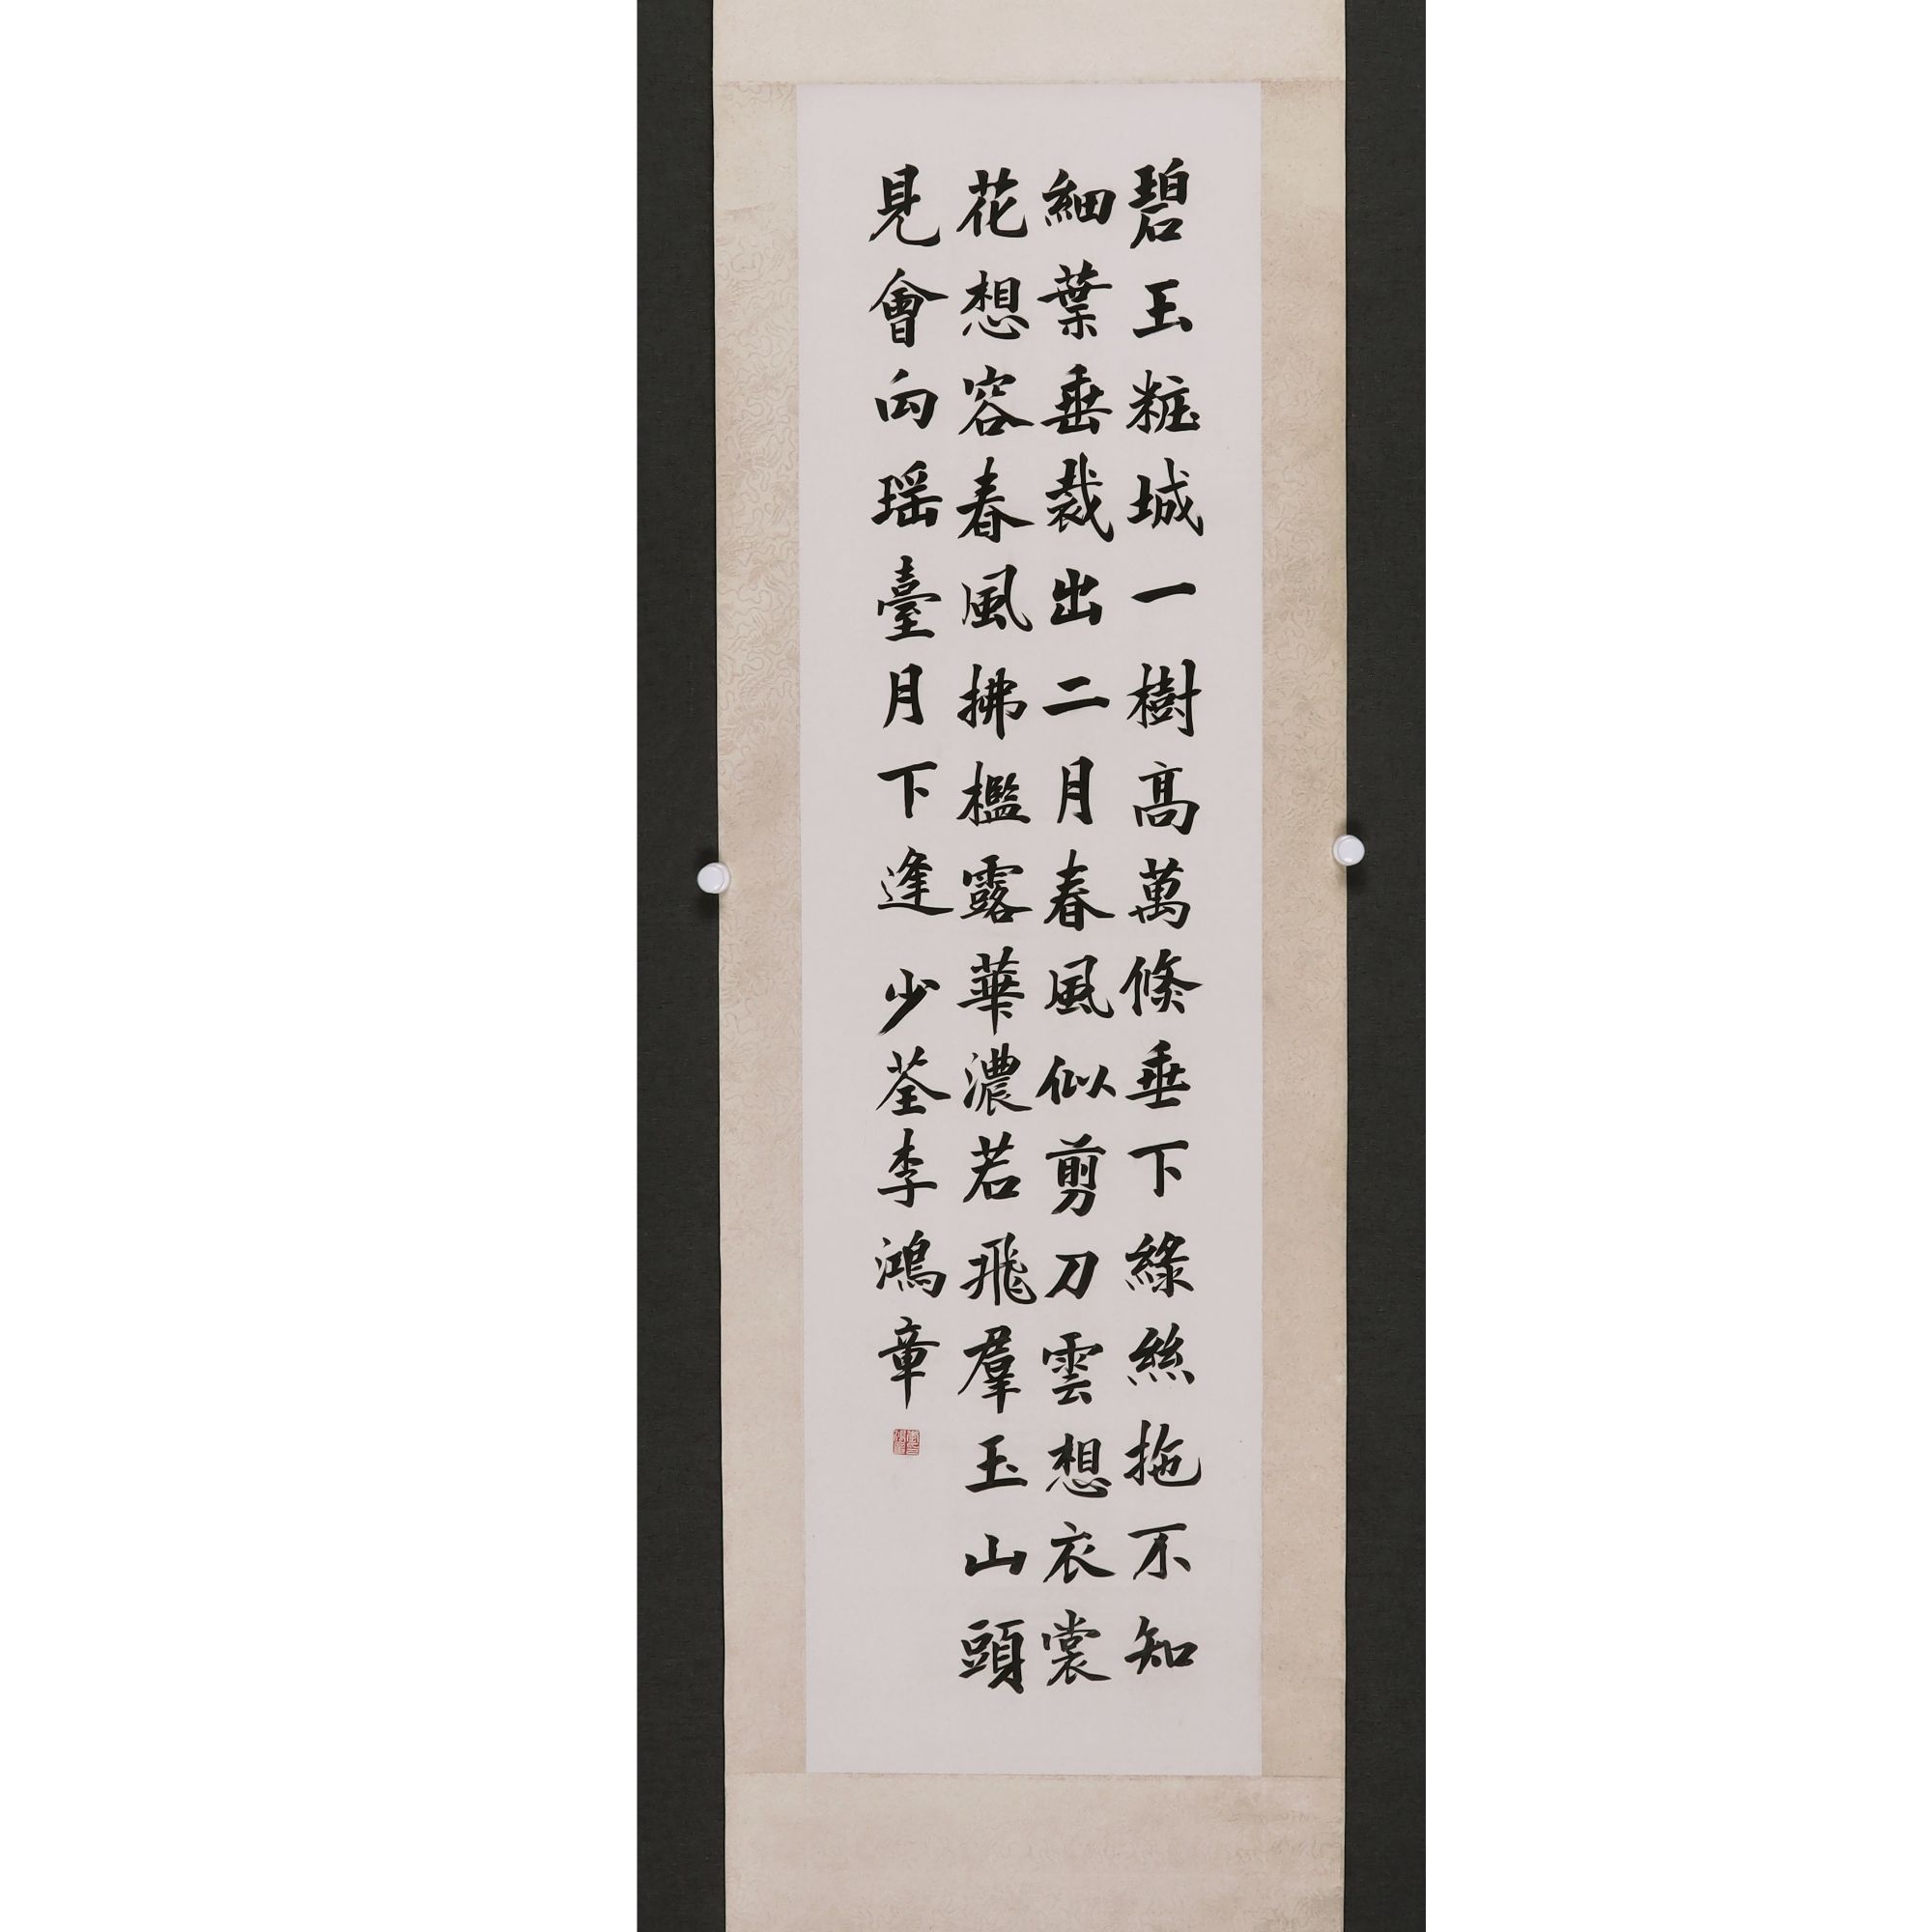 碧玉粧城一樹高萬條垂下綠絲拖不知
細葉垂裁出二月春風似剪刀雲想衣裳
花想容春風拂檻露華濃若飛羣玉山頭
見會向瑶臺月下逢 少荃李鴻章